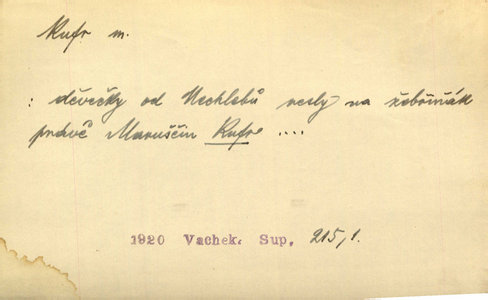 Kufr m.
: děvečky od Nechlebů nesly na žebřiňák
právě Maruščin Kufr ....
1920 Vachek. Sup, 215,1.